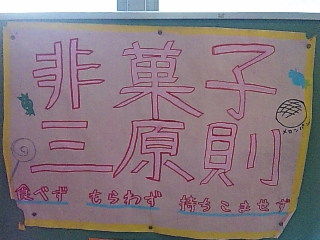 非菓子
三原則
メロンパン
食べず もらわず 持ちこませず